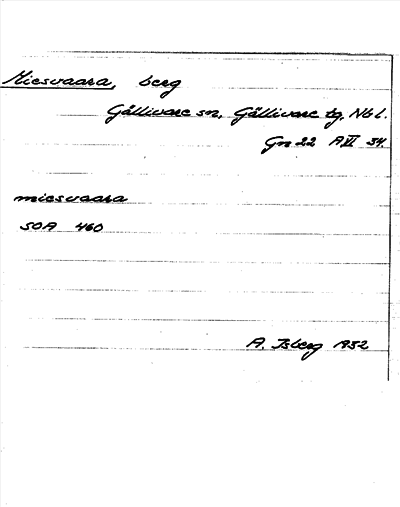 Miesvaara, berg
Gällivare sn, Gällivare tg. Nbl.
Gn 22 A VI 34.
miesvaara
SOA 460
A. Isberg 1932